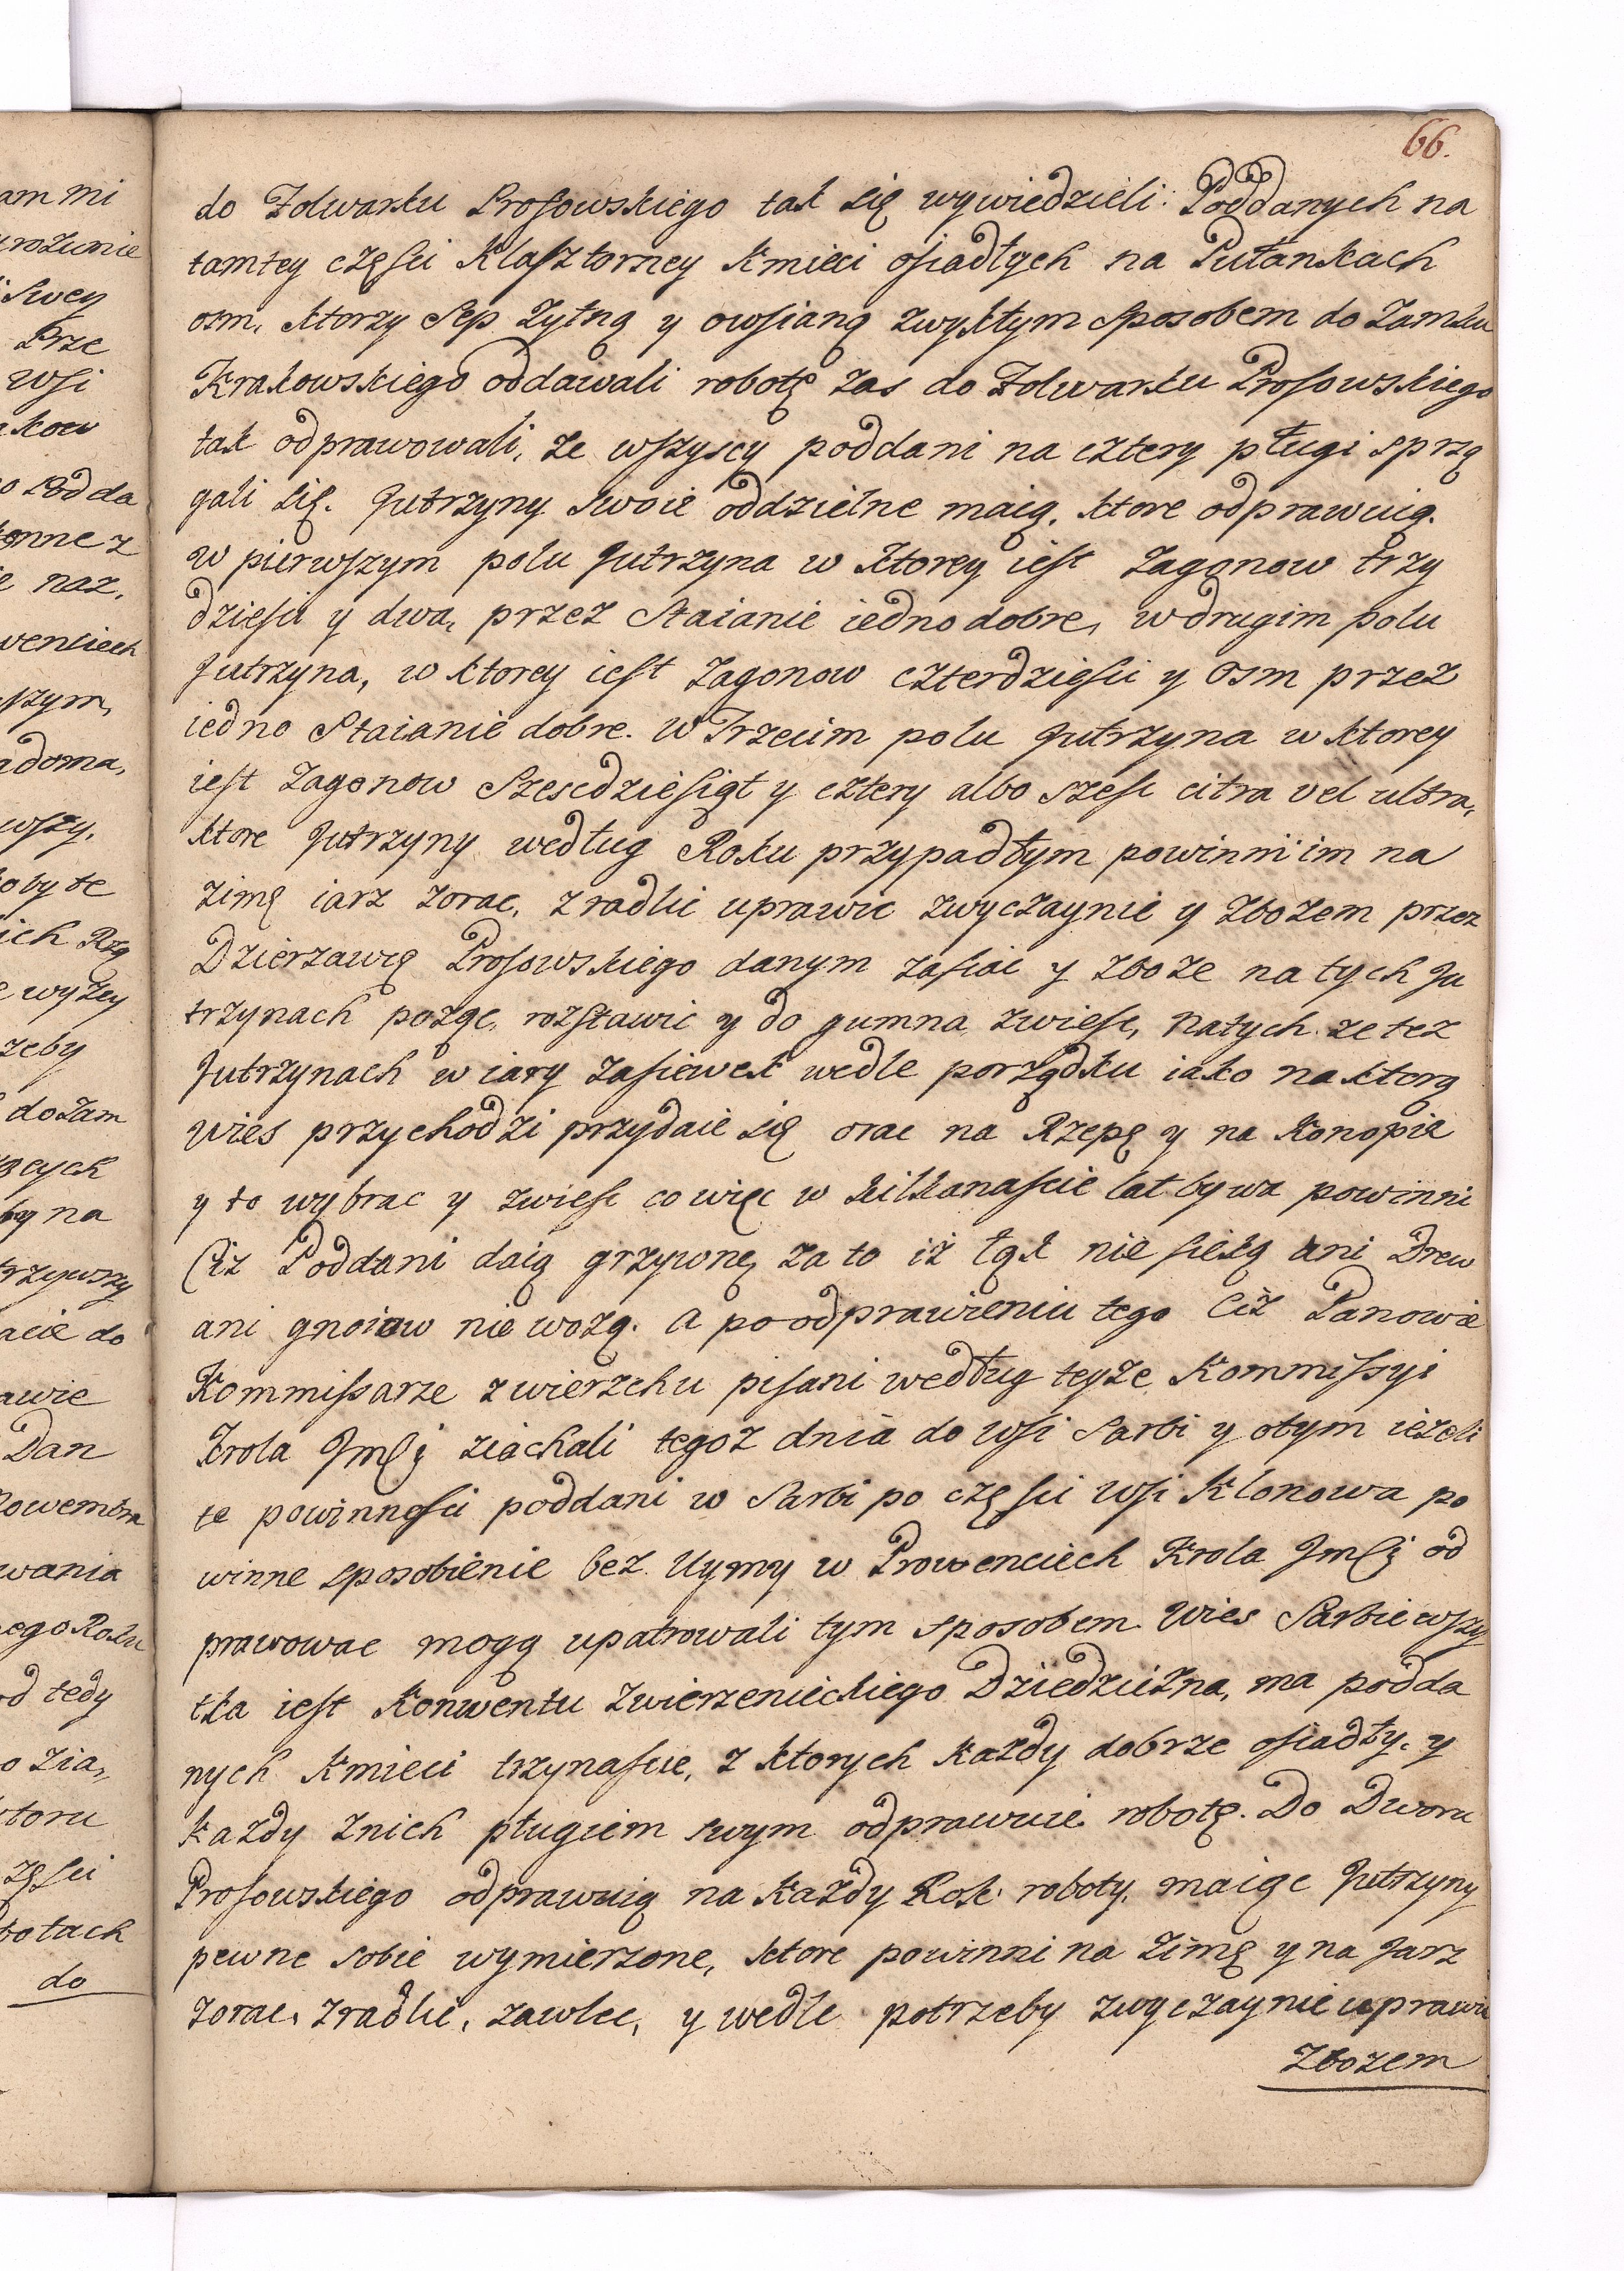 66.
do Folwarku Prosowskiego tak się wywiedzieli. Poddanych na
tamtey części Klasztorney Kmieci osiadłych na Pułankach
osm, ktorzy Sep Zytną y owsianą zwykłym sposobem do Zamku
Krakowskiego oddawali robotę zas do Folwarku Prosowskiego
tak odprawowali, ze wszyscy poddani na cztery pługi sprzą
gali się. Jutrzyny swoie oddzielne maią, ktore odprawuią.
w pierwszym polu Jutrzyna w ktorey iest Zagonow trzy
dziesci y dwa, przez Staianie iedno dobre, w drugim polu
Jutrzyna, w ktorey iest Zagonow czterdziesci y osm przez
iedno Staianie dobre. W Trzecim polu Jutrzyna w ktorey
iest Zagonow Szescdziesiąt y cztery albo szesc citra vel ultra,
ktore Jutrzyny według Roku przypadłym powinni im na
zimę iarz zorac, zradlic uprawic zwyczaynie y zbozem przez
Dzierzawcę Prosowskiego danym zasiac y zboze na tych Ju
trzynach pozgc, rozstawic y do gumna zwiesc, na tych ze tez
Jutrzynach w iary zasiewek wedle porządku iako na ktorą
wies przychodzi przydaie się orac na Rzepę y na Konopie
y to wybrac y zwiesc co więc w kilkanascie lat bywa powinni
Ciz Poddani daią grzywnę za to iż Łąk nie sieką ani Drew
ani gnoiow nie wozą. A po odprawieniu tego Ciż Panowie
Kommissarze zwierzchu pisani według teyże Kommissyi
Krola Jmći ziachali tegoz dnia do wsi Sarbi y otym ieżeli
te powinnosci poddani w Sarbi po części wsi Klonowa po
winne sposobienie bez Uymy w Prowenciech Krola Jmći od
prawowac mogą upatrowali tym sposobem. Wies Sarbie wszy
tka iest Konwentu Zwierzenieckiego Dziedziczna, ma podda
nych Kmieci trzynascie, z ktorych każdy dobrze osiadły, y
każdy znich pługiem swym odprawuie robotę. Do Dworu
Prosowskiego odprawuią na każdy Rok roboty, maiąc Jutrzyny
pewne sobie wymierzone, ktore powinni na Zimę y na Jarz
zorac, zradlic, zawlec, y wedle potrzeby zwyczaynie uprawic
Zbozem